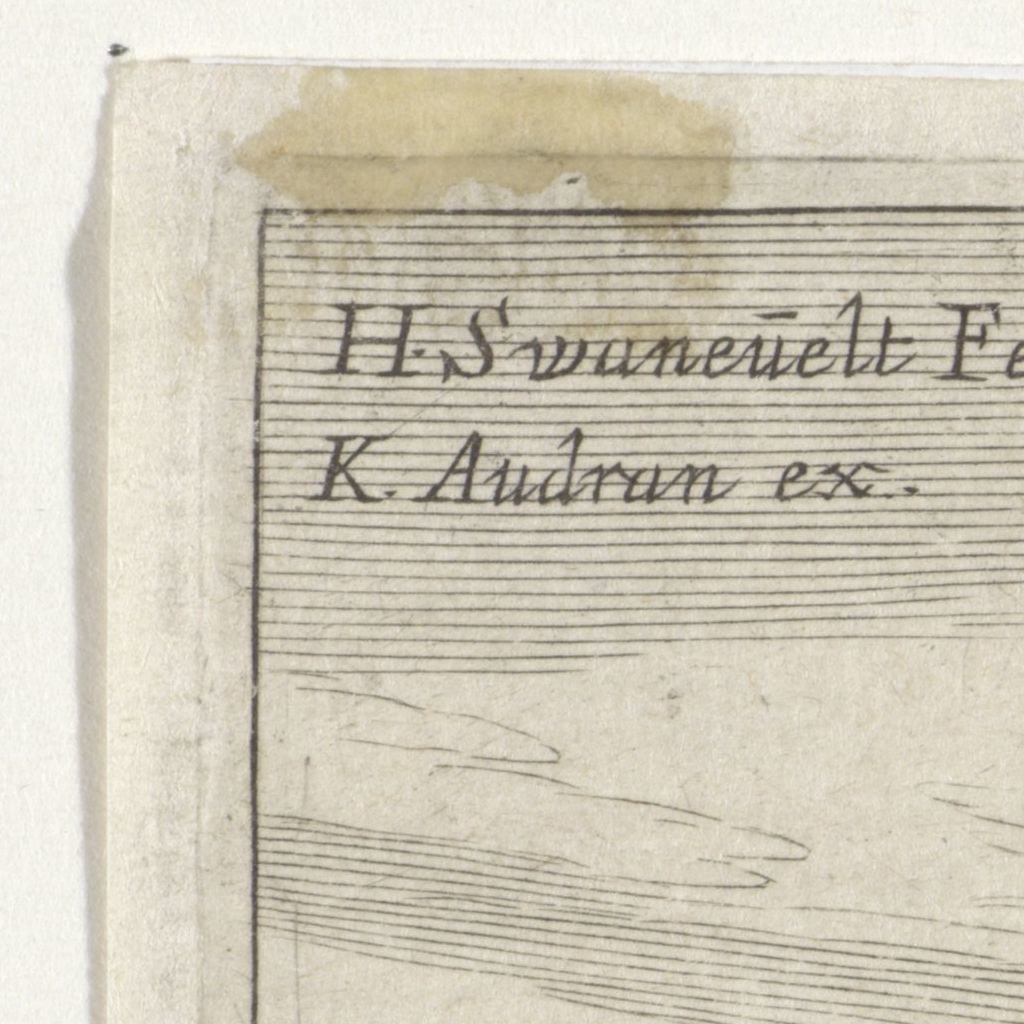 H. Swaneūelt Fe
K. Audran ex.